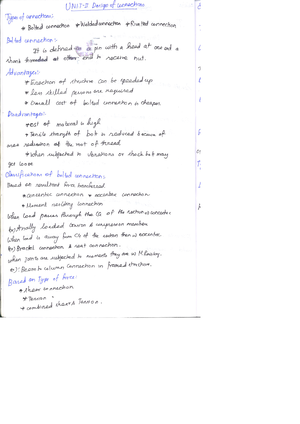 UNIT-I Design of connections
Types of connections:
* Bolted connection * Welded connection * Rivetted connection
Bolted connection:
It is defined as a pin with a head at one end & shank threaded at other end to receive nut.
Advantages:
* Erection of structure can be speeded up
* Less skilled persons are required
* Overall cost of bolted connection is cheaper
Disadvantages:
* cost of material is high
* Tensile strength of bolt is reduced because of
area reduction at the root of thread
* When subjected to vibrations or shock bolt may
get loose
Classification of bolted connection:
Based on resultant force transferred
* Concentric connection * eccentric connection
* Moment resisting connection
When load passes through the CG of the section is concentric
(ex) Axially loaded tension & compression member
When load is away from CG of the section then is eccentric
(ex) Bracket connection & seat connection.
When joints are subjected to moments they are M.Resisting.
(ex): Beam to column connection in framed structure.
Based on Type of Force:
* Shear connection
* Tension "
* combined shear & Tension.